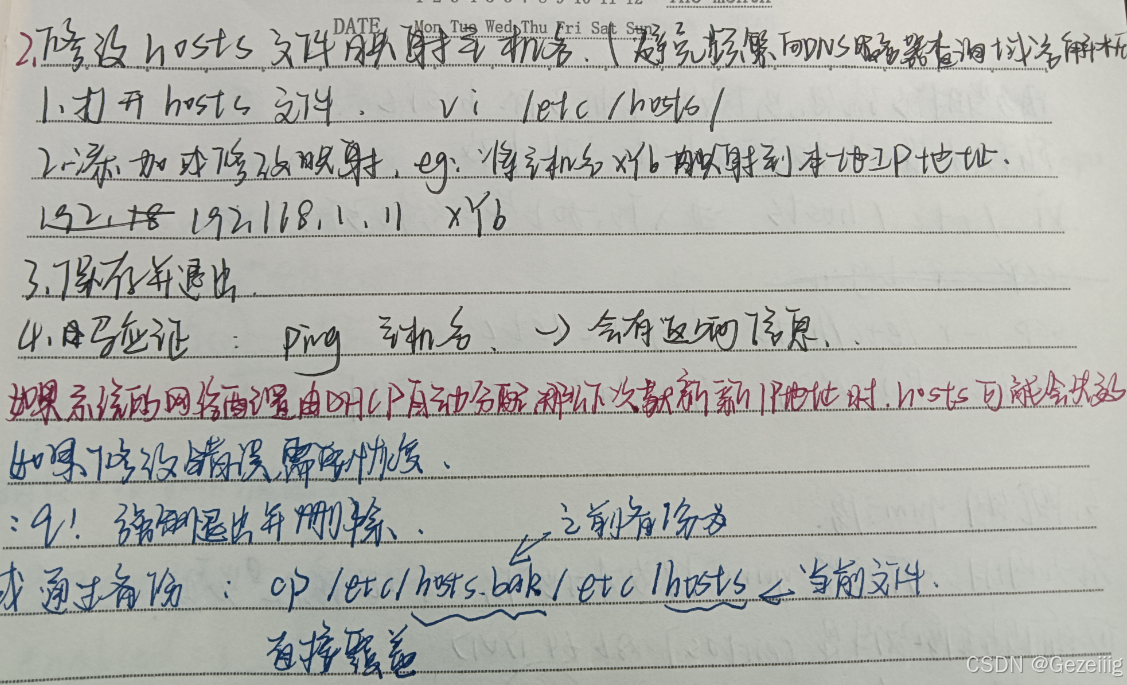 DATE Mon Tue Wed Thu Fri Sat Sun
2.修改hosts文件映射主机名.(避免频繁向DNS服务器查询域名解析
1.打开hosts文件. vi /etc/hosts/
2.添加或修改映射,eg:将主机名xYb映射到本地IP地址.
192.18 192.168.1.11 xYb
3.保存并退出.
4.验证: ping 主机名. -> 会有返回信息..
如果系统的网络配置由DHCP自动分配,那么下次获新新IP地址时.hosts可能会失效
如果修改错误需要恢复.
:q! 强制退出并删除. 之前备份为
或通过备份: cp /etc/hosts.bak /etc/hosts <- 当前文件.
直接覆盖
CSDN @Gezeiiig